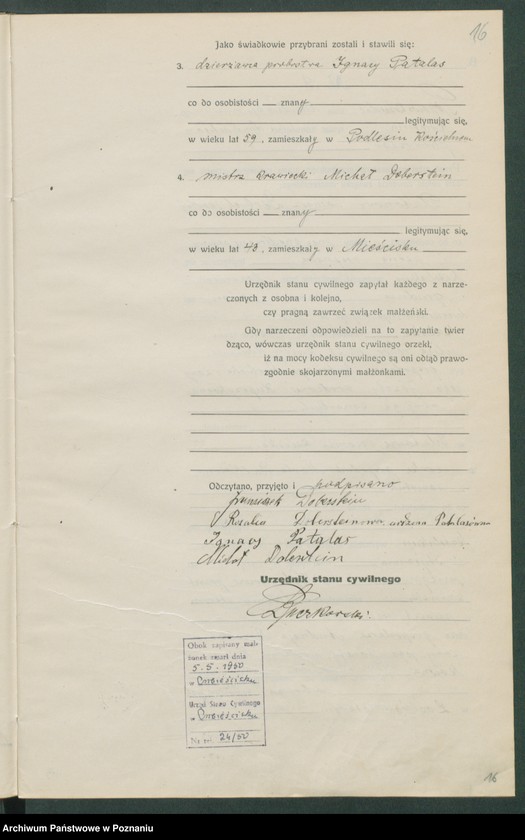 16
Jako świadkowie przybrani zostali i stawili się:
3. dzierżawca probostwa Ignacy Patalas
co do osobistości znany
legitymując się,
w wieku lat 59, zamieszkały w Podlesiu Kościelnem
4. mistrz krawiecki Michał Doberstein
co do osobistości znany
legitymując się,
w wieku lat 43, zamieszkały w Mieścisku
Urzędnik stanu cywilnego zapytał każdego z narze-
czonych z osobna i kolejno,
czy pragną zawrzeć związek małżeński.
Gdy narzeczeni odpowiedzieli na to zapytanie twier
dząco, wówczas urzędnik stanu cywilnego orzekł,
iż na mocy kodeksu cywilnego są oni odtąd prawo-
zgodnie skojarzonymi małżonkami.
Odczytano, przyjęto i podpisano
Franciszek
Rozalia urodzona Patalasówna
Ignacy Patalas
Michał Doberstein
Urzędnik stanu cywilnego
Obok zapisany mał-
żonek zmarł dnia
5.5.1950
w Mieścisku
Urząd Stanu Cywilnego
w Mieścisku
Nr rej. 24/50
16
Archiwum Państwowe w Poznaniu